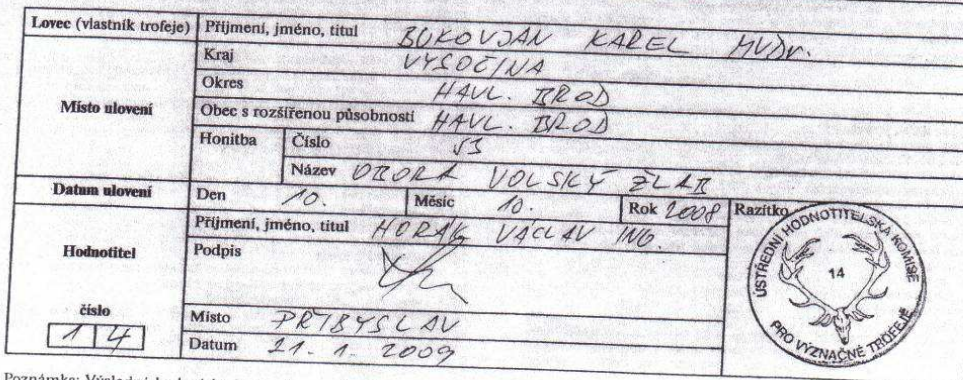 Lovec (vlastník trofeje) Příjmení, jméno, titul BUKOVJAN KAREL MVDr.
Místo ulovení
Kraj VYSOČINA
Okres HAVL. BROD
Obec s rozšířenou působností HAVL. BROD
Honitba Číslo 53
Název OBORA VOLSKÝ ŽLAB
Datum ulovení Den 10. Měsíc 10. Rok 2008 Razítko
Hodnotitel
Příjmení, jméno, titul HORÁK VÁCLAV ING.
Podpis
číslo
14
Místo PŘIBYSLAV
Datum 21. 1. 2009
ÚSTŘEDNÍ HODNOTITELSKÁ KOMISE
14
PRO VÝZNAČNÉ TROFEJE
Poznámka: